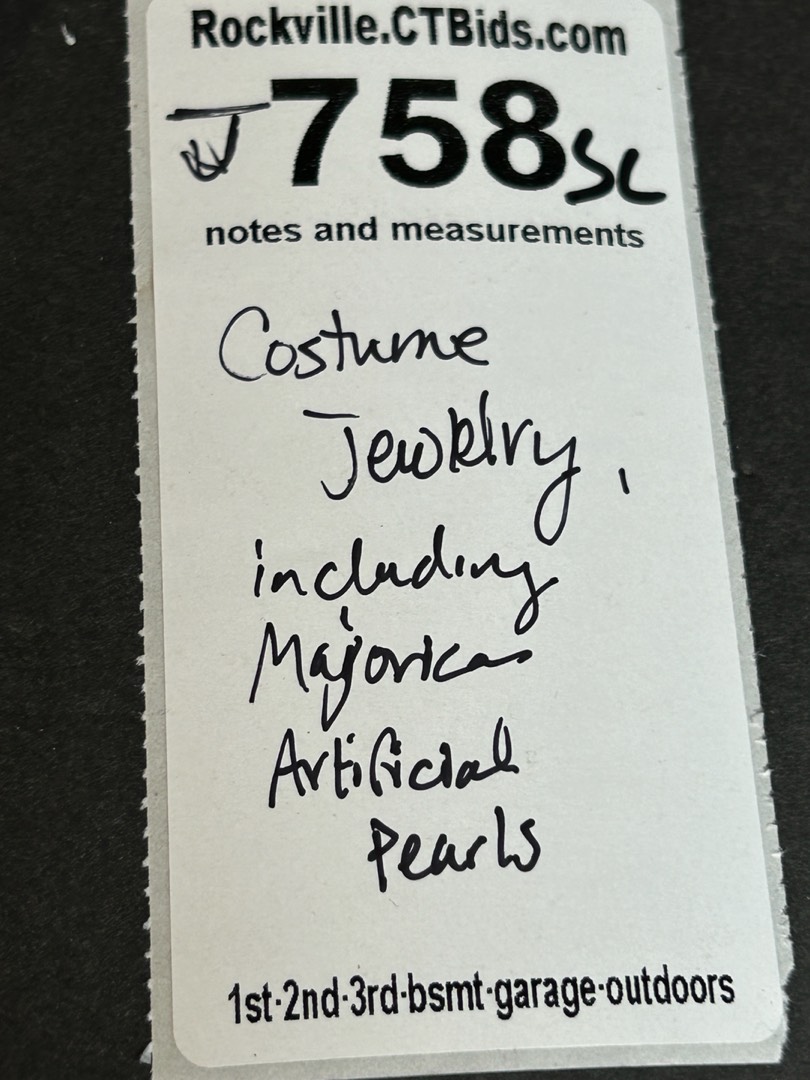 Rockville.CTBids.com
J758SC
notes and measurements
Costume
Jewelry,
including
Majorica
Artificial
Pearls
1st·2nd·3rd·bsmt·garage·outdoors